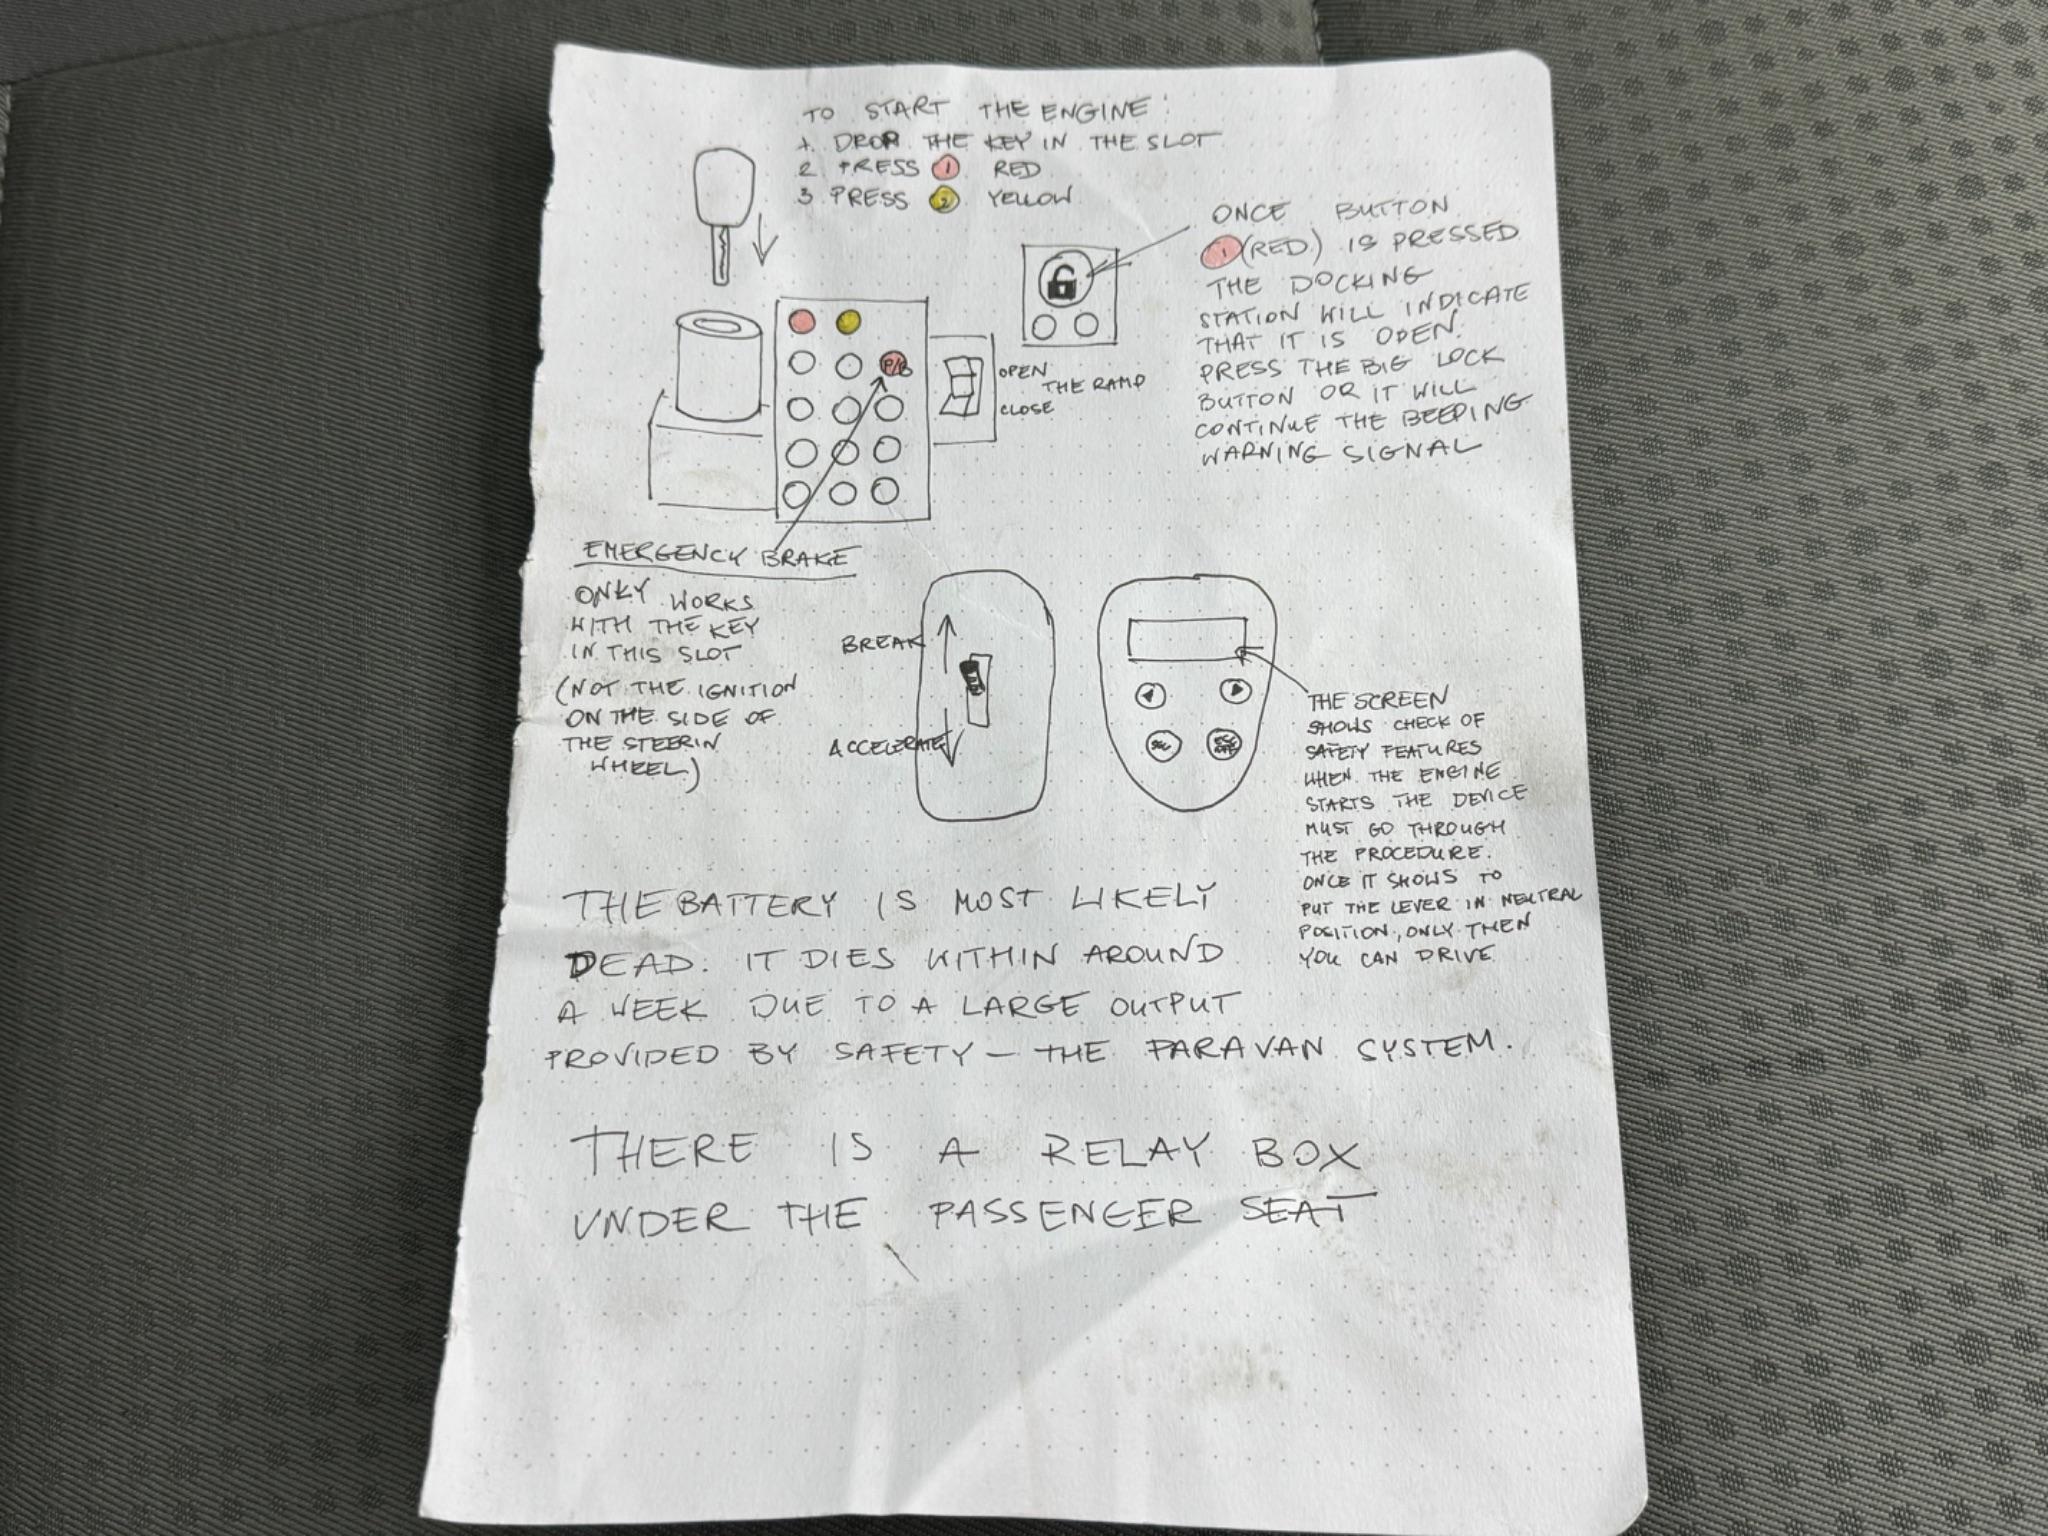 TO START THE ENGINE:
1. DROP THE KEY IN THE SLOT
2 PRESS 1 RED
3 PRESS 2 YELLOW
ONCE BUTTON
1 (RED) IS PRESSED
THE DOCKING
STATION WILL INDICATE
THAT IT IS OPEN.
PRESS THE BIG LOCK
BUTTON OR IT WILL
CONTINUE THE BEEPING
WARNING SIGNAL
P/B
OPEN
THE RAMP
CLOSE
EMERGENCY BRAKE
ONLY WORKS
WITH THE KEY
IN THIS SLOT
(NOT THE IGNITION
ON THE SIDE OF
THE STEERIN
WHEEL)
BREAK
ACCELERATE
THE SCREEN
SHOWS CHECK OF
SAFETY FEATURES
WHEN THE ENGINE
STARTS THE DEVICE
MUST GO THROUGH
THE PROCEDURE.
ONCE IT SHOWS TO
PUT THE LEVER IN NEUTRAL
POSITION, ONLY THEN
YOU CAN DRIVE
THE BATTERY IS MOST LIKELY
DEAD. IT DIES WITHIN AROUND
A WEEK DUE TO A LARGE OUTPUT
PROVIDED BY SAFETY – THE PARAVAN SYSTEM.
THERE IS A RELAY BOX
UNDER THE PASSENGER SEAT